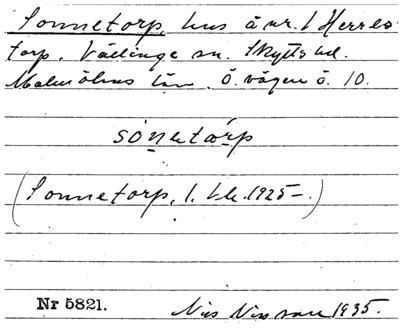 Sonnetorp, hus å nr. 1 Herres-
torp, Vällinge sn. Skytts hd.
Malmöhus län. Ö. vägen ö. 10.
sónetòrp
(Sonnetorp, 1. 1925–.)
Nr 5821. Nils Nilsson 1935.